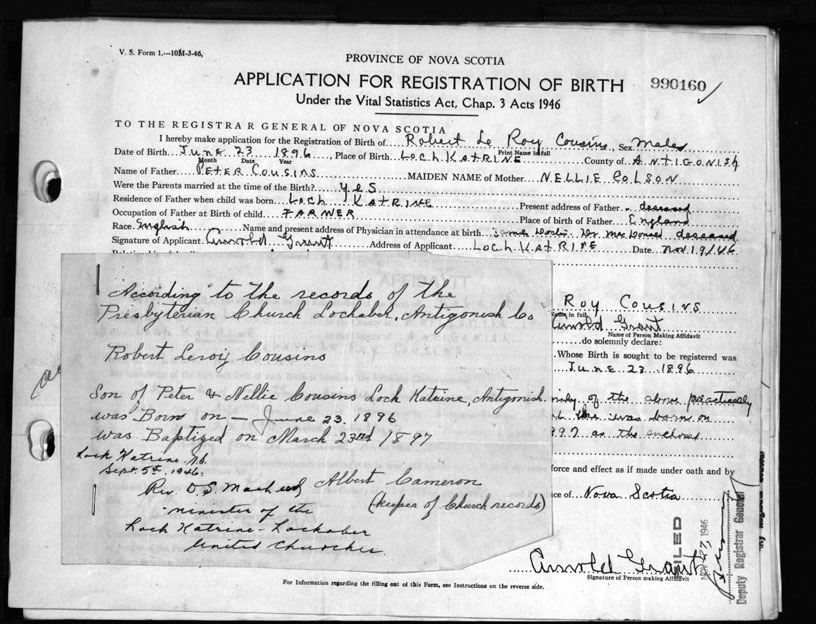 V. S. Form 1.—10M-3-46.
PROVINCE OF NOVA SCOTIA
APPLICATION FOR REGISTRATION OF BIRTH 990160
Under the Vital Statistics Act, Chap. 3 Acts 1946
TO THE REGISTRAR GENERAL OF NOVA SCOTIA
I hereby make application for the Registration of Birth of Robert Le Roy Cousins, Sex Male
Print Name in full
Date of Birth June 23 1896, Place of Birth LOCH KATRINE County of ANTIGONISH
Month Date Year
Name of Father PETER COUSINS MAIDEN NAME of Mother NELLIE COLSON
Were the Parents married at the time of the Birth? YES
Residence of Father when child was born LOCH KATRINE Present address of Father deseased
Occupation of Father at Birth of child FARMER Place of birth of Father England
Race English Name and present address of Physician in attendance at birth deseased
Signature of Applicant Arnold Grant Address of Applicant LOCH KATRINE Date Nov 19/46
According to the records of the
Presbyterian Church Lochaber, Antigonish Co
Robert Leroy Cousins
Son of Peter & Nellie Cousins Loch Katrine, Antigonish
was Born on — June 23. 1896
was Baptized on March 23rd 1897
Loch Katrine, N.S.
Sept. 5th, 1946.
Albert Cameron
(keeper of Church records)
Rev. D. S.
minister of the
Loch Katrine-Lochaber
United Churches.
Roy Cousins
Arnold Grant
Name of Person Making Affidavit
do solemnly declare:
Whose Birth is sought to be registered was
June 23 1896
of the above practically
he was born on
as the
force and effect as if made under oath and by
ce of Nova Scotia
FILED
1946
Deputy Registrar General
Arnold Grant
Signature of Person making Affidavit
For Information regarding the filling out of this Form, see Instructions on the reverse side.